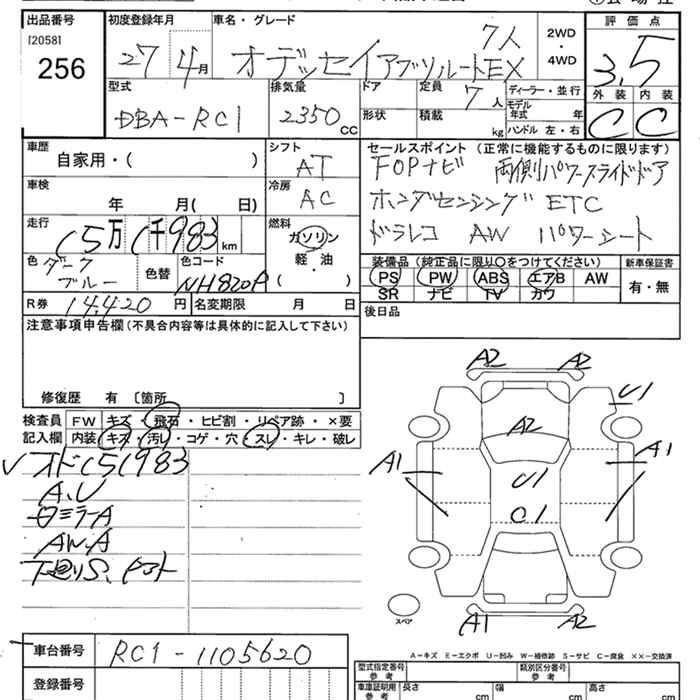 出品番号
[2058]
256
初度登録年月
27 4月
車名・グレード
オデッセイアブソルートEX
7人
2WD
・
4WD
評価点
3.5
外装 内装
C C
型式
DBA-RC1
排気量
2350 CC
ドア
形状
定員 7 人
積載 kg
ディーラー・並行
モデル年式 年
ハンドル 左・右
車歴
自家用・( )
シフト
AT
車検
年 月( 日)
冷房
AC
セールスポイント (正常に機能するものに限ります)
FOPナビ 両側パワースライドドア
ホンダセンシング ETC
ドラレコ AW パワーシート
走行
15万1千983 km
燃料
ガソリン
軽・油
( )
色 ダークブルー
色替
色コード
NH820P
装備品 (純正品に限り○をつけてください)
PS PW ABS エアB AW
SR ナビ TV カワ
新車保証書
有・無
R券 14,420 円
名変期限 月 日
後日品
注意事項申告欄(不具合内容等は具体的に記入して下さい)
修復歴 有 〔箇所 〕
検査員
記入欄
FW キズ・飛石・ヒビ割・リペア跡・×要
内装 キズ・汚レ・コゲ・穴・スレ・キレ・破レ
オド151983
A.U
ミラーA
AW.A
下廻りS.
A2 A2
U1
A2
A1 A1
U1
C1
A1 A2
スペア
A-キズ E-エクボ U-凹み W-補修跡 S-サビ C-腐食 ××-交換済
車台番号 RC1-1105620
登録番号
型式指定番号
参考
類別区分番号
参考
車庫証明用
参考
長さ cm
幅 cm
高さ cm